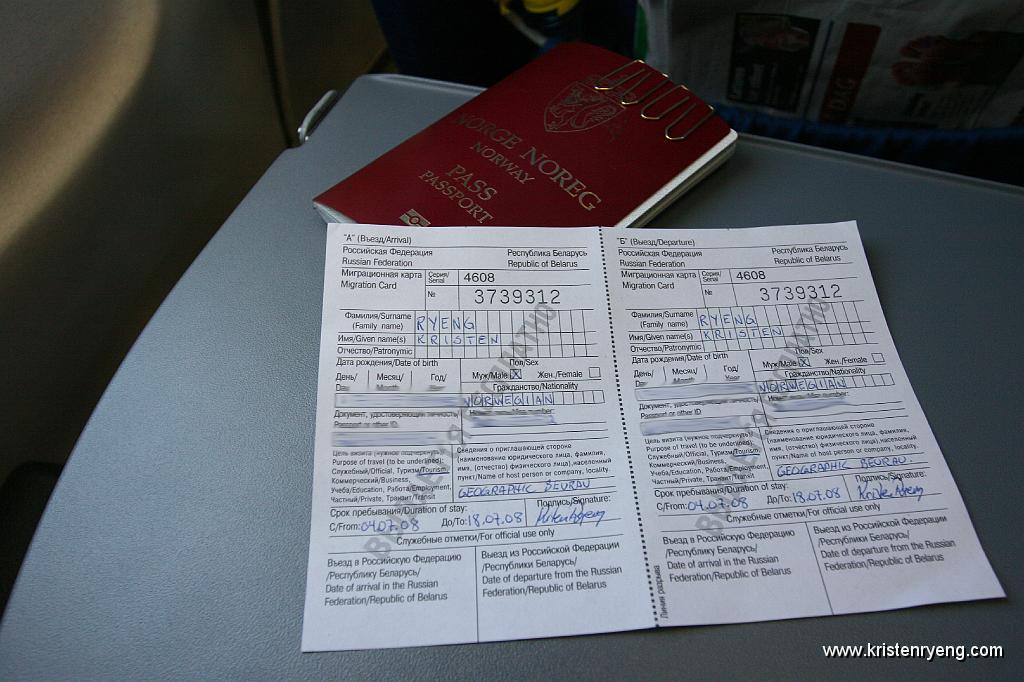 NORGE NOREG
NORWAY
PASS
PASSPORT
"А" (Въезд/Arrival)
Российская Федерация Республика Беларусь
Russian Federation Republic of Belarus
Миграционная карта Серия/Serial 4608
Migration Card № 3739312
Фамилия/Surname
(Family name) RYENG
Имя/Given name(s) KRISTEN
Отчество/Patronymic
Дата рождения/Date of birth Пол/Sex
День/ Месяц/ Год/ Муж/Male X Жен./Female
Day Month Year Гражданство/Nationality
NORWEGIAN
Документ, удостоверяющий личность/
Passport or other ID
Цель визита (нужное подчеркнуть):
Purpose of travel (to be underlined):
Служебный/Official, Туризм/Tourism,
Коммерческий/Business,
Учеба/Education, Работа/Employment,
Частный/Private, Транзит/Transit
Сведения о приглашающей стороне
(наименование юридического лица, фамилия,
имя, (отчество) физического лица),населенный
пункт/Name of host person or company, locality.
GEOGRAPHIC BEURAU
Срок пребывания/Duration of stay: Подпись/Signature:
С/From: 04.07.08 До/To: 18.07.08
Служебные отметки/For official use only
Въезд в Российскую Федерацию
/Республику Беларусь/
Date of arrival in the Russian
Federation/Republic of Belarus
Выезд из Российской Федерации
/Республики Беларусь/
Date of departure from the Russian
Federation/Republic of Belarus
"Б" (Выезд/Departure)
Российская Федерация Республика Беларусь
Russian Federation Republic of Belarus
Миграционная карта Серия/Serial 4608
Migration Card № 3739312
Фамилия/Surname
(Family name) RYENG
Имя/Given name(s) KRISTEN
Отчество/Patronymic
Дата рождения/Date of birth Пол/Sex
День/ Месяц/ Год/ Муж/Male X Жен./Female
Day Month Year Гражданство/Nationality
NORWEGIAN
Документ, удостоверяющий личность/
Passport or other ID
Цель визита (нужное подчеркнуть):
Purpose of travel (to be underlined):
Служебный/Official, Туризм/Tourism,
Коммерческий/Business,
Учеба/Education, Работа/Employment,
Частный/Private, Транзит/Transit
Сведения о приглашающей стороне
(наименование юридического лица, фамилия,
имя, (отчество) физического лица),населенный
пункт/Name of host person or company, locality.
GEOGRAPHIC BEURAU
Срок пребывания/Duration of stay: Подпись/Signature:
С/From: 04.07.08 До/To: 18.07.08
Служебные отметки/For official use only
Въезд в Российскую Федерацию
/Республику Беларусь/
Date of arrival in the Russian
Federation/Republic of Belarus
Выезд из Российской Федерации
/Республики Беларусь/
Date of departure from the Russian
Federation/Republic of Belarus
Линия разрыва
www.kristenryeng.com